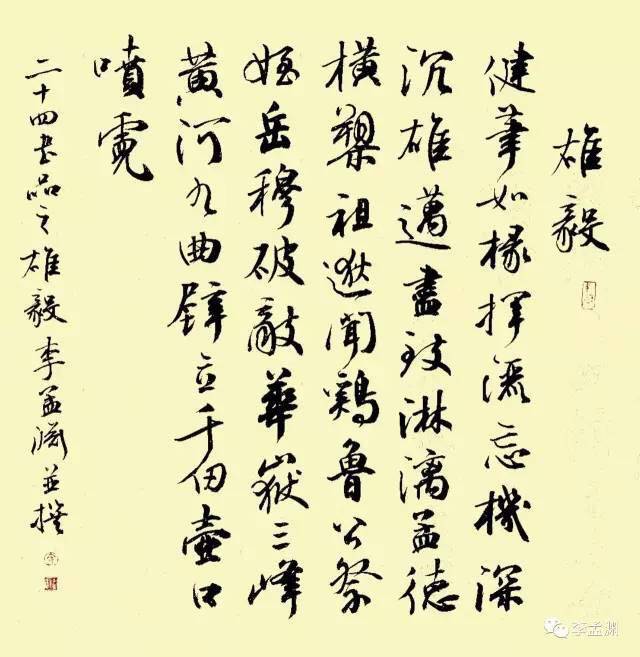 雄毅
健筆如椽揮灑忘機深
沉雄邁盡致淋漓孟德
橫槊祖逖聞鷄魯公祭
姪岳穆破敵華嶽三峰
黃河九曲壁立千仞壺口
噴霓
二十四書品之雄毅李孟淵並撰
李孟渊